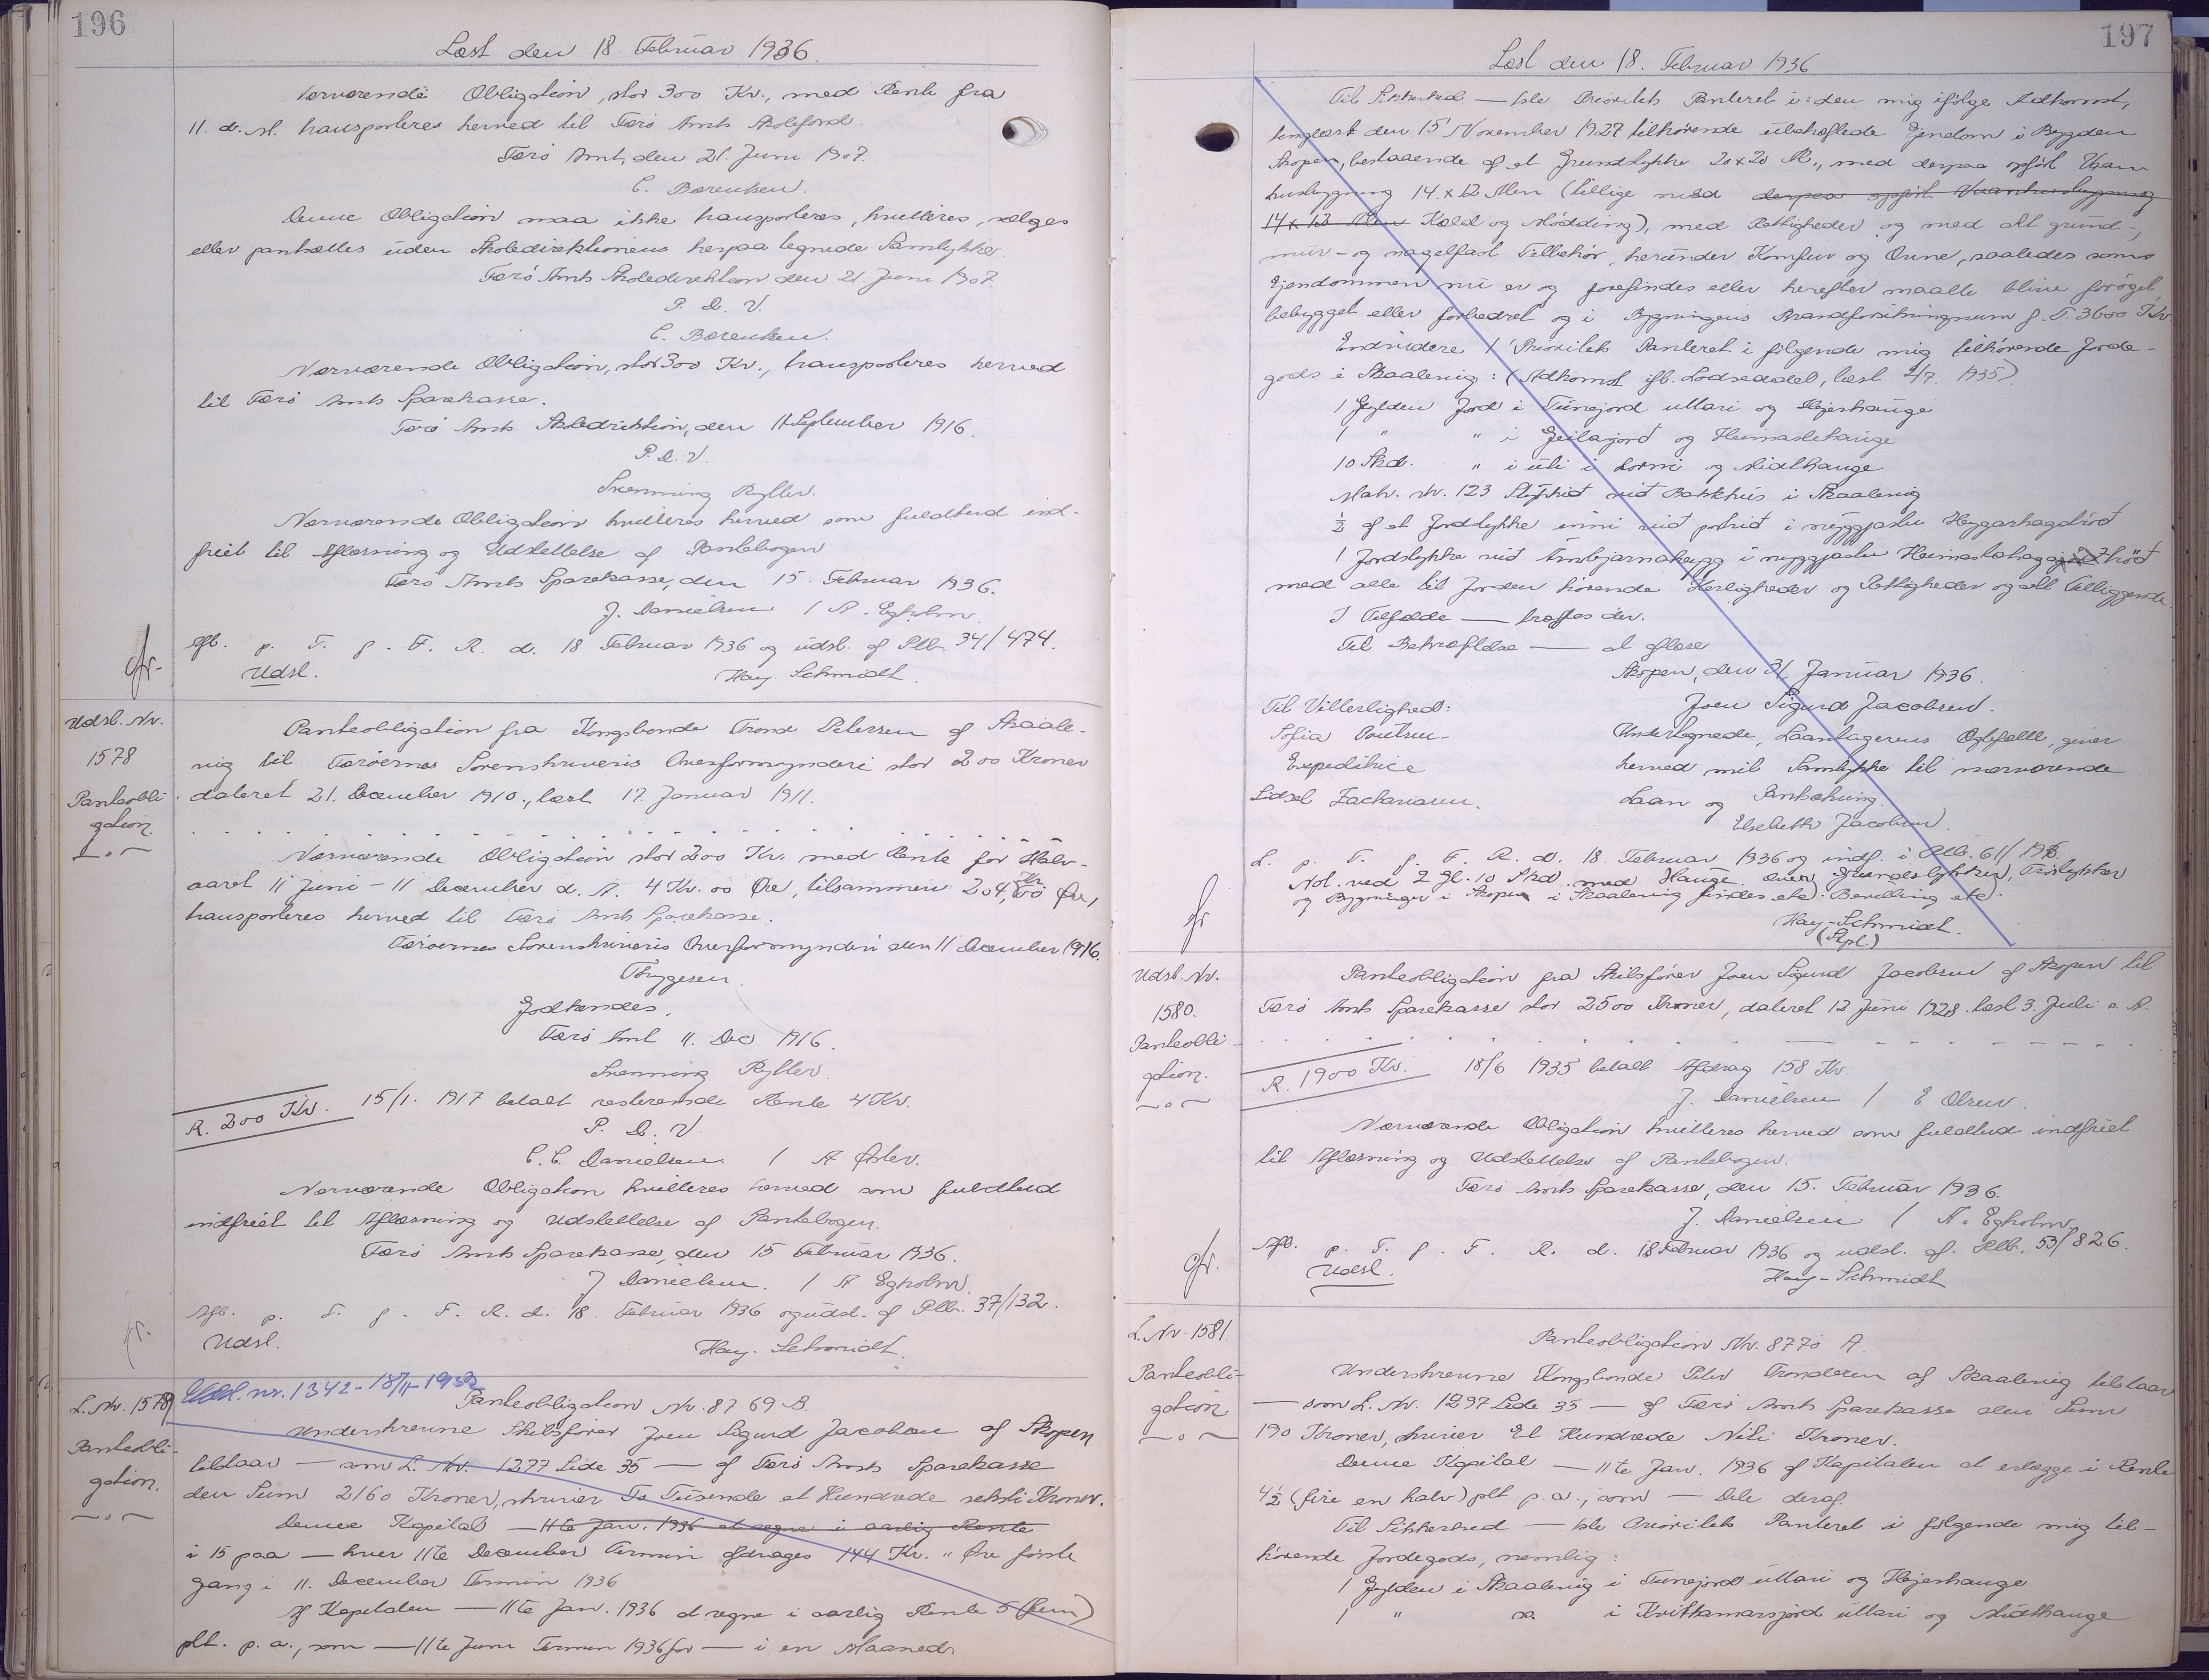 196
Læst den 18. Februar 1936.
Nærværende Obligation, stor 300 Kr., med Rente fra
11. d. M. transporteres herved til Færö Amts Skolefond.
Færö Amt, den 21. Juni 1907.
C. Bærentsen.
Denne Obligation maa ikke transporteres, kvitteres, sælges
eller pantsættes uden Skoledirektionens herpaa tegnede Samtykke.
Færö Amts Skoledirektion den 21. Juni 1907.
P. D. V.
C. Bærentsen.
Nærværende Obligation, stor 300 Kr., transporteres herved
til Færö Amts Sparekasse.
Færö Amts Skoledirektion, den 11 September 1916.
P. D. V.
Svenning Rytter.
Nærværende Obligation kvitteres herved som fuldtud ind-
friet til Aflæsning og Udslettelse af Pantebogen
Færö Amts Sparekasse, den 15. Februar 1936.
J. Danielsen / A. Egholm
Afl. p. T. f. F. R. d. 18 Februar 1936 og udsl. af Ptb. 34/474.
Udsl. Hay. Schmidt.
cfr.
Udsl. Nr.
1578
Panteobli-
gation.
Panteobligation fra Kongsbonde Trond Petersen af Skaale-
vig til Færöernes Sorenskriveris Overformynderi stor 200 Kroner
dateret 21. December 1910., læst 17. Januar 1911.
Nærværende Obligation stor 200 Kr. med Rente for Halv-
aaret 11 Juni - 11 December d. A. 4 Kr. 00 Øre, tilsammen 204 Kr, 00 Øre,
transporteres herved til Færö Amts Sparekasse.
Færöernes Sorenskriveris Overformynderi den 11 December 1916.
Thygesen.
Godkendes.
Færö Amt 11. Dec 1916.
Svenning Rytter.
R. 200 Kr. 15/1. 1917 betalt resterende Rente 4 Kr.
P. D. V.
C. C. Danielsen / A
Nærværende Obligation kvitteres herved som fuldtud
indfriet til Aflæsning og Udslettelse af Pantebogen.
Færö Amts Sparekasse, den 15 Februar 1936.
J Danielsen. / A Egholm.
Afl. p. T. f. F. R. d. 18. Februar 1936 og udsl. af Ptb. 37/132.
Udsl. Hay-Schmidt.
cfr.
Udsl. nr. 1342 - 18/11-1952
L. Nr. 1579
Panteobli-
gation.
Panteobligation Nr. 8769 B.
Underskrevne Skibsfører Joen Sigurd Jacobsen af Skopen
tilstaar — som L. Nr. 1277 Side 35 — af Færö Amts Sparekasse
den Sum 2160 Kroner, skriver To Tusende et Hundrede seksti Kroner.
Denne Kapital — 11te Jan. 1936 at regne i aarlig Rente
i 15 paa — hver 11te December Termin afdrages 144 Kr. " Øre første
gang i 11. December Termin 1936
Af Kapitalen — 11te Jan. 1936 at regne i aarlig Rente 5 (fem)
pCt. p. a., som — 11te Juni Termin 1936 for — i en Maaned
197
Læst den 18. Februar 1936
Til Sikkerhed — 1ste Prioritets Panteret i: den mig ifølge Adkomst,
tinglæst den 15' November 1927 tilhørende ubehæftede Ejendom i Bygden
Skopen, bestaaende af et Grundstykke 20 x 20 Al., med derpaa opført Vaan
husbygning 14 x 12 Alen (tillige med derpaa opført Vaanhusbygning
14 x 12 Alen Kæld og Mødding), med Rettigheder og med Alt grund-,
mur- og nagelfast Tilbehør, herunder Komfur og Ovne, saaledes som
Ejendommen nu er og forefindes eller herefter maatte blive forøget
bebygget eller forbedret og i Bygningens Brandforsikringssum f. T. 3600 Kr.
Endvidere 1' Prioritets Panteret i følgende mig tilhørende Jorde-
gods i Skaalevig: (Adkomst ifl. Lodseddel, læst 2/7. 1935)
1 Gylden Jord i Túnsjord uttari og Høgeshauge
1 " " i Geilajord og Heimastehauge
10 Skd. " i úti i Dorni og Midthauge
Matr. Nr. 123 Stykkið við Bakkhús i Skaalevig
½ af et Jordstykke inni við portrið i nýggjastu Heygarhagatröð
1 Jordstykke við Arnbjarnaheygg i nýggjastu Heimastahagatröð
med alle til Jorden hørende Herligheder og Rettigheder og alt tilliggende.
I Tilfælde — træffes der.
Til Bekræftelse — at aflæse
Skopen, den 31. Januar 1936.
Til Vitterlighed: Joen Sigurd Jacobsen.
Sofia Poulsen
Expeditrice
Lidsel Zachariasen.
Undertegnede, Laantagerens Ægtefælle, giver
herved mit Samtykke til nærværende
Laan og Pantsætning.
Elsebeth Jacobsen.
L. p. T. f. F. R. d. 18. Februar 1936 og indf. i Ptb. 61/196.
Not. ved 2 Gl. 10 Skd. med Hauge over Grundstykker, Trøstykker
og Bygninger i Skopen i Skaalevig findes etc. Bevilling etc.
Hay-Schmidt.
(Stpl.)
cfr
Udsl. Nr.
1580.
Panteobli-
gation.
Panteobligation fra Skibsfører Joen Sigurd Jacobsen af Skopen til
Færö Amts Sparekasse stor 2500 Kroner, dateret 12 Juni 1928. læst 3. Juli s. A.
R. 1900 Kr. 18/6 1935 betalt Afdrag 158 Kr.
J. Danielsen / E Olsen.
Nærværende Obligation kvitteres herved som fuldtud indfriet
til Aflæsning og Udslettelse af Pantebogen.
Færö Amts Sparekasse, den 15. Februar 1936.
J. Danielsen / A. Egholm
Afl. p. T. f. F. R. d. 18 Februar 1936 og udsl. af. Ptb. 53/826.
Udsl. Hay-Schmidt
cfr.
L. Nr. 1581.
Panteobli-
gation
Panteobligation Nr. 8770 A.
Underskrevne Kongsbonde Peter Trondesen af Skaalevig tilstaar
— som L. Nr. 1297 Side 35 — af Færö Amts Sparekasse den Sum
190 Kroner, skriver Et Hundrede Niti Kroner.
Denne Kapital — 11te Jan. 1936 af Kapitalen at erlægge i Rente
4½ (fire en halv) pCt p. a., som — Dele deraf.
Til Sikkerhed — 1ste Prioritets Panteret i følgende mig til-
hørende Jordegods, nemlig:
1 Gylden i Skaalevig i Túnsjord uttari og Høgeshauge
1 " sa. i Kvittamarsjord uttari og Midthauge